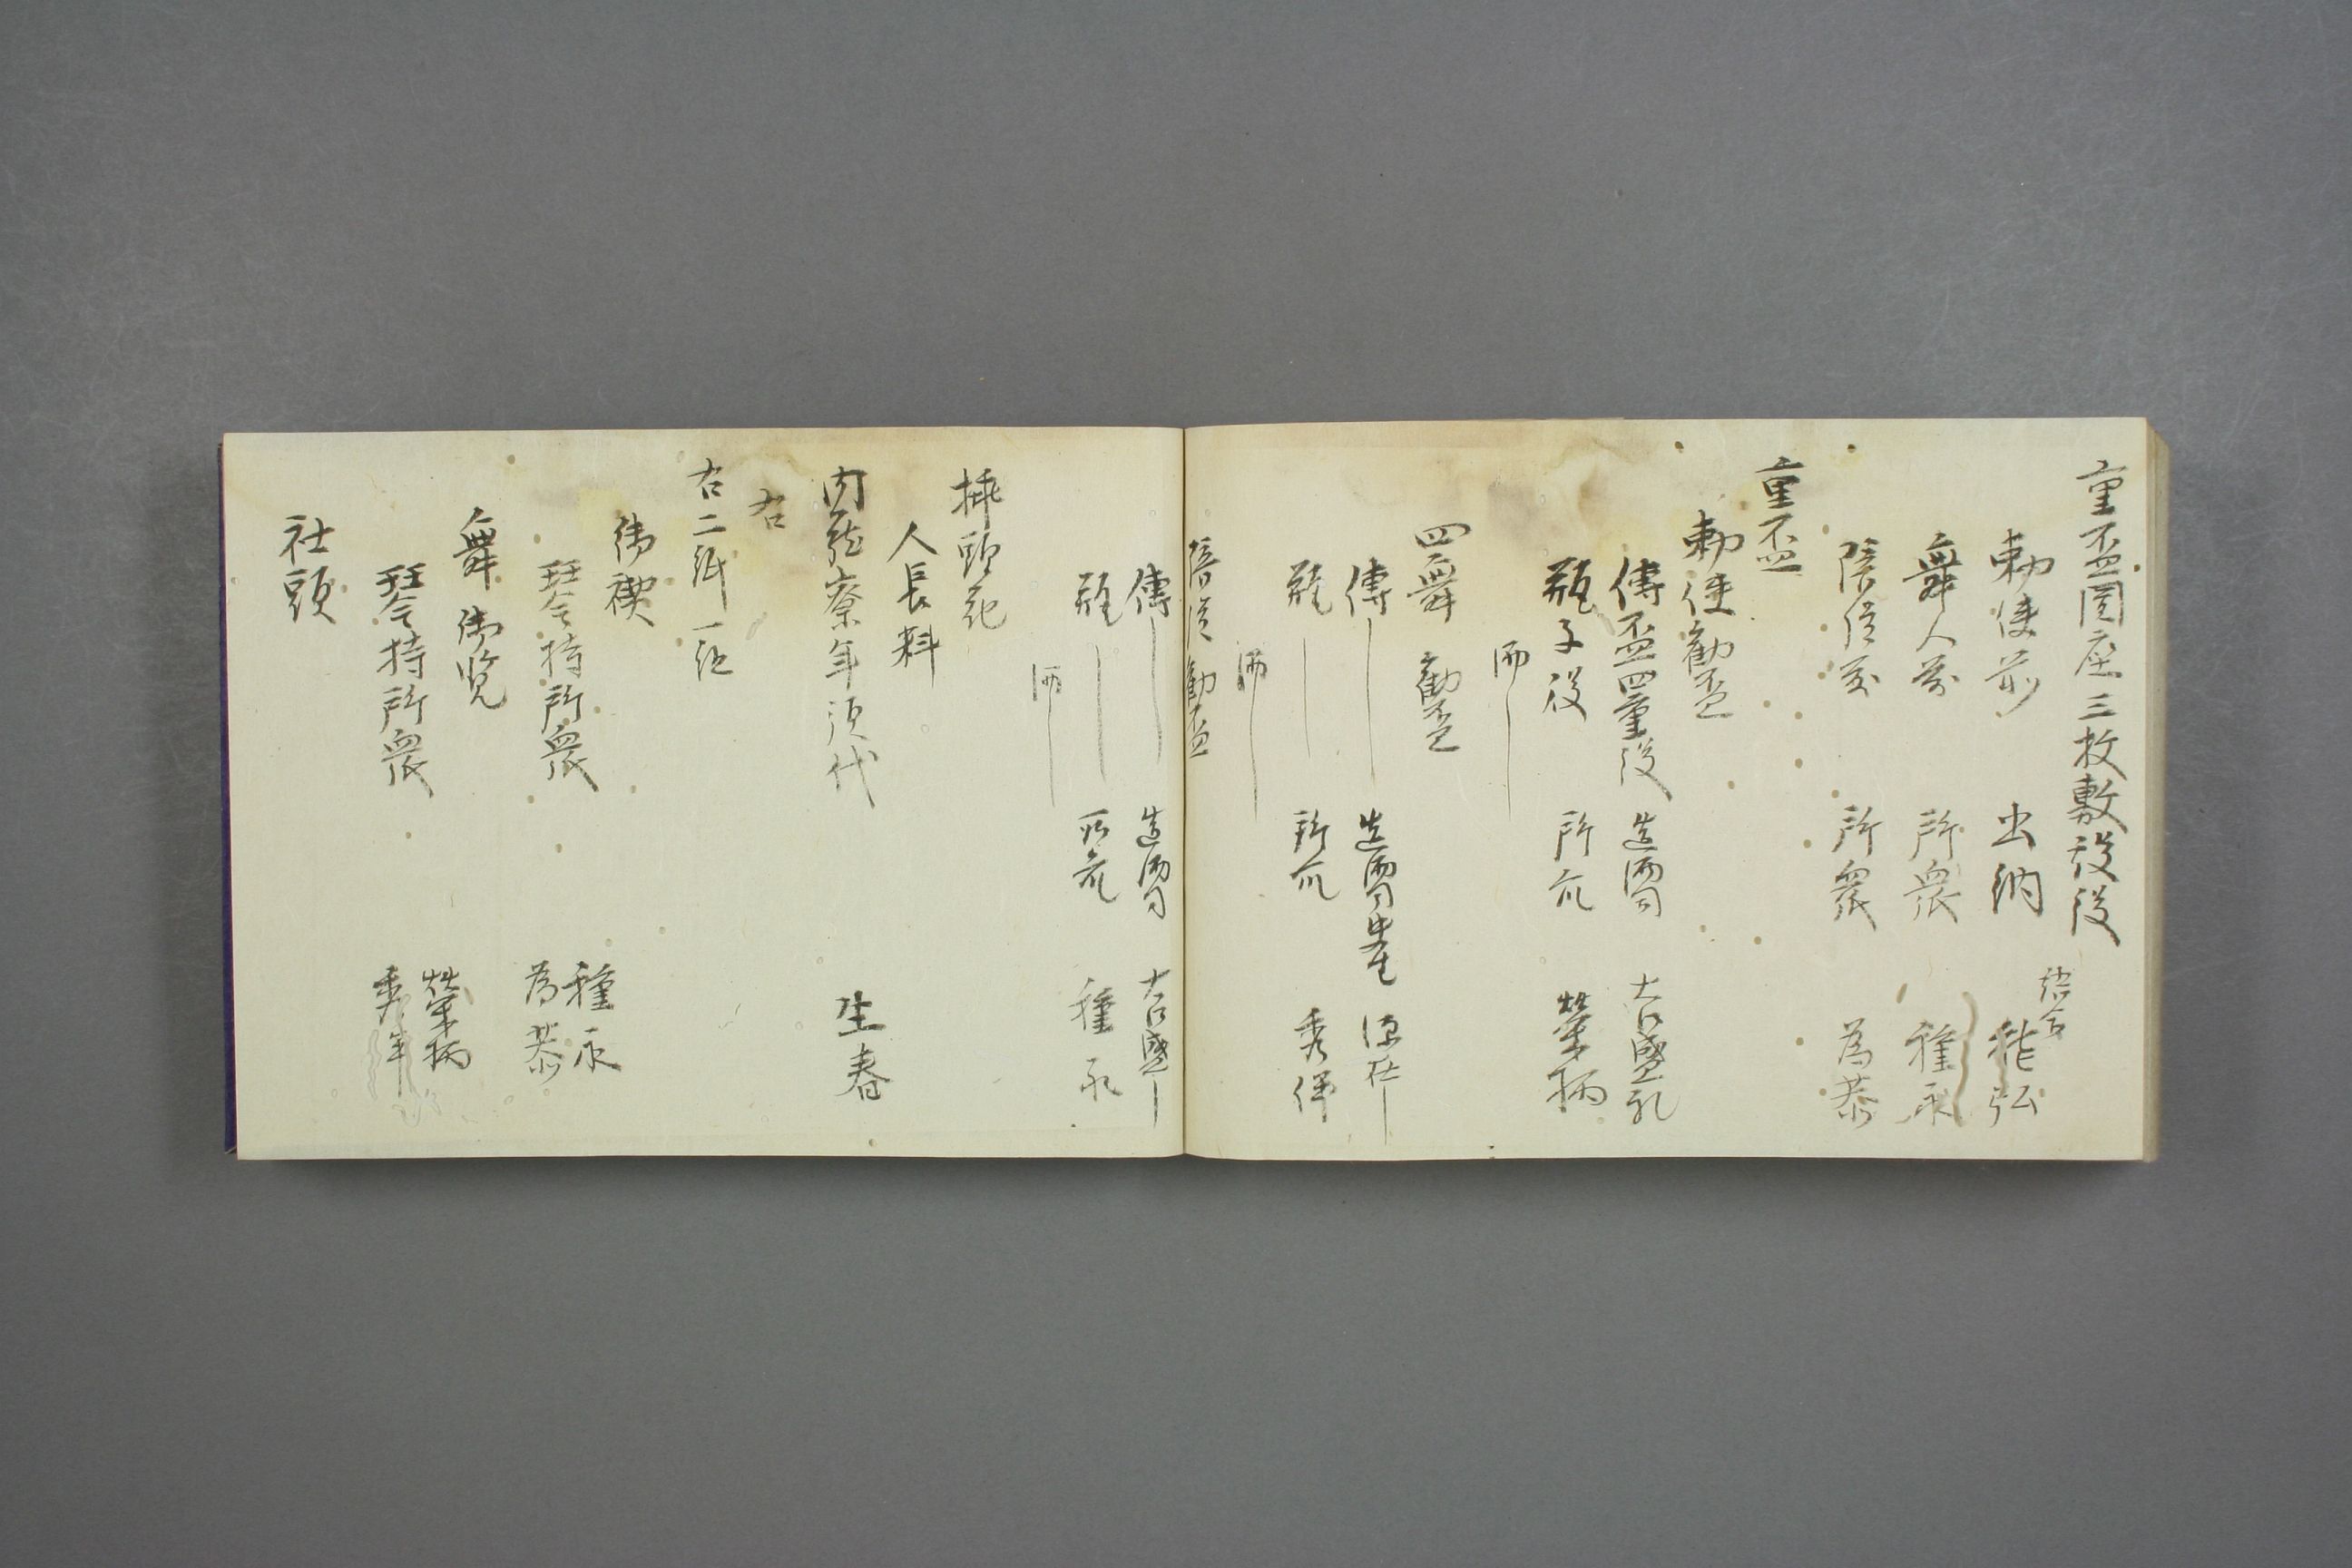 重盃圓座三枚敷設役
勅使前 出納 職弘
舞人前 所衆 種永
陪従前 所衆 為恭
重盃
勅使勧盃
傳盃四重役 造酒司 大呂盛礼
瓶子役 所衆 榮柄
同
四舞 勧盃
傳 造酒司
瓶 所衆 秀伴
同
陪従 勧盃
傳 造酒司 大呂盛
瓶 所衆 種永
同
挿頭花
人長料
内蔵寮年預代 生春
右
右二紙一紙
御禊
琴持所衆 種永
為恭
舞 御覧
琴持所衆 榮柄
秀伴
社頭